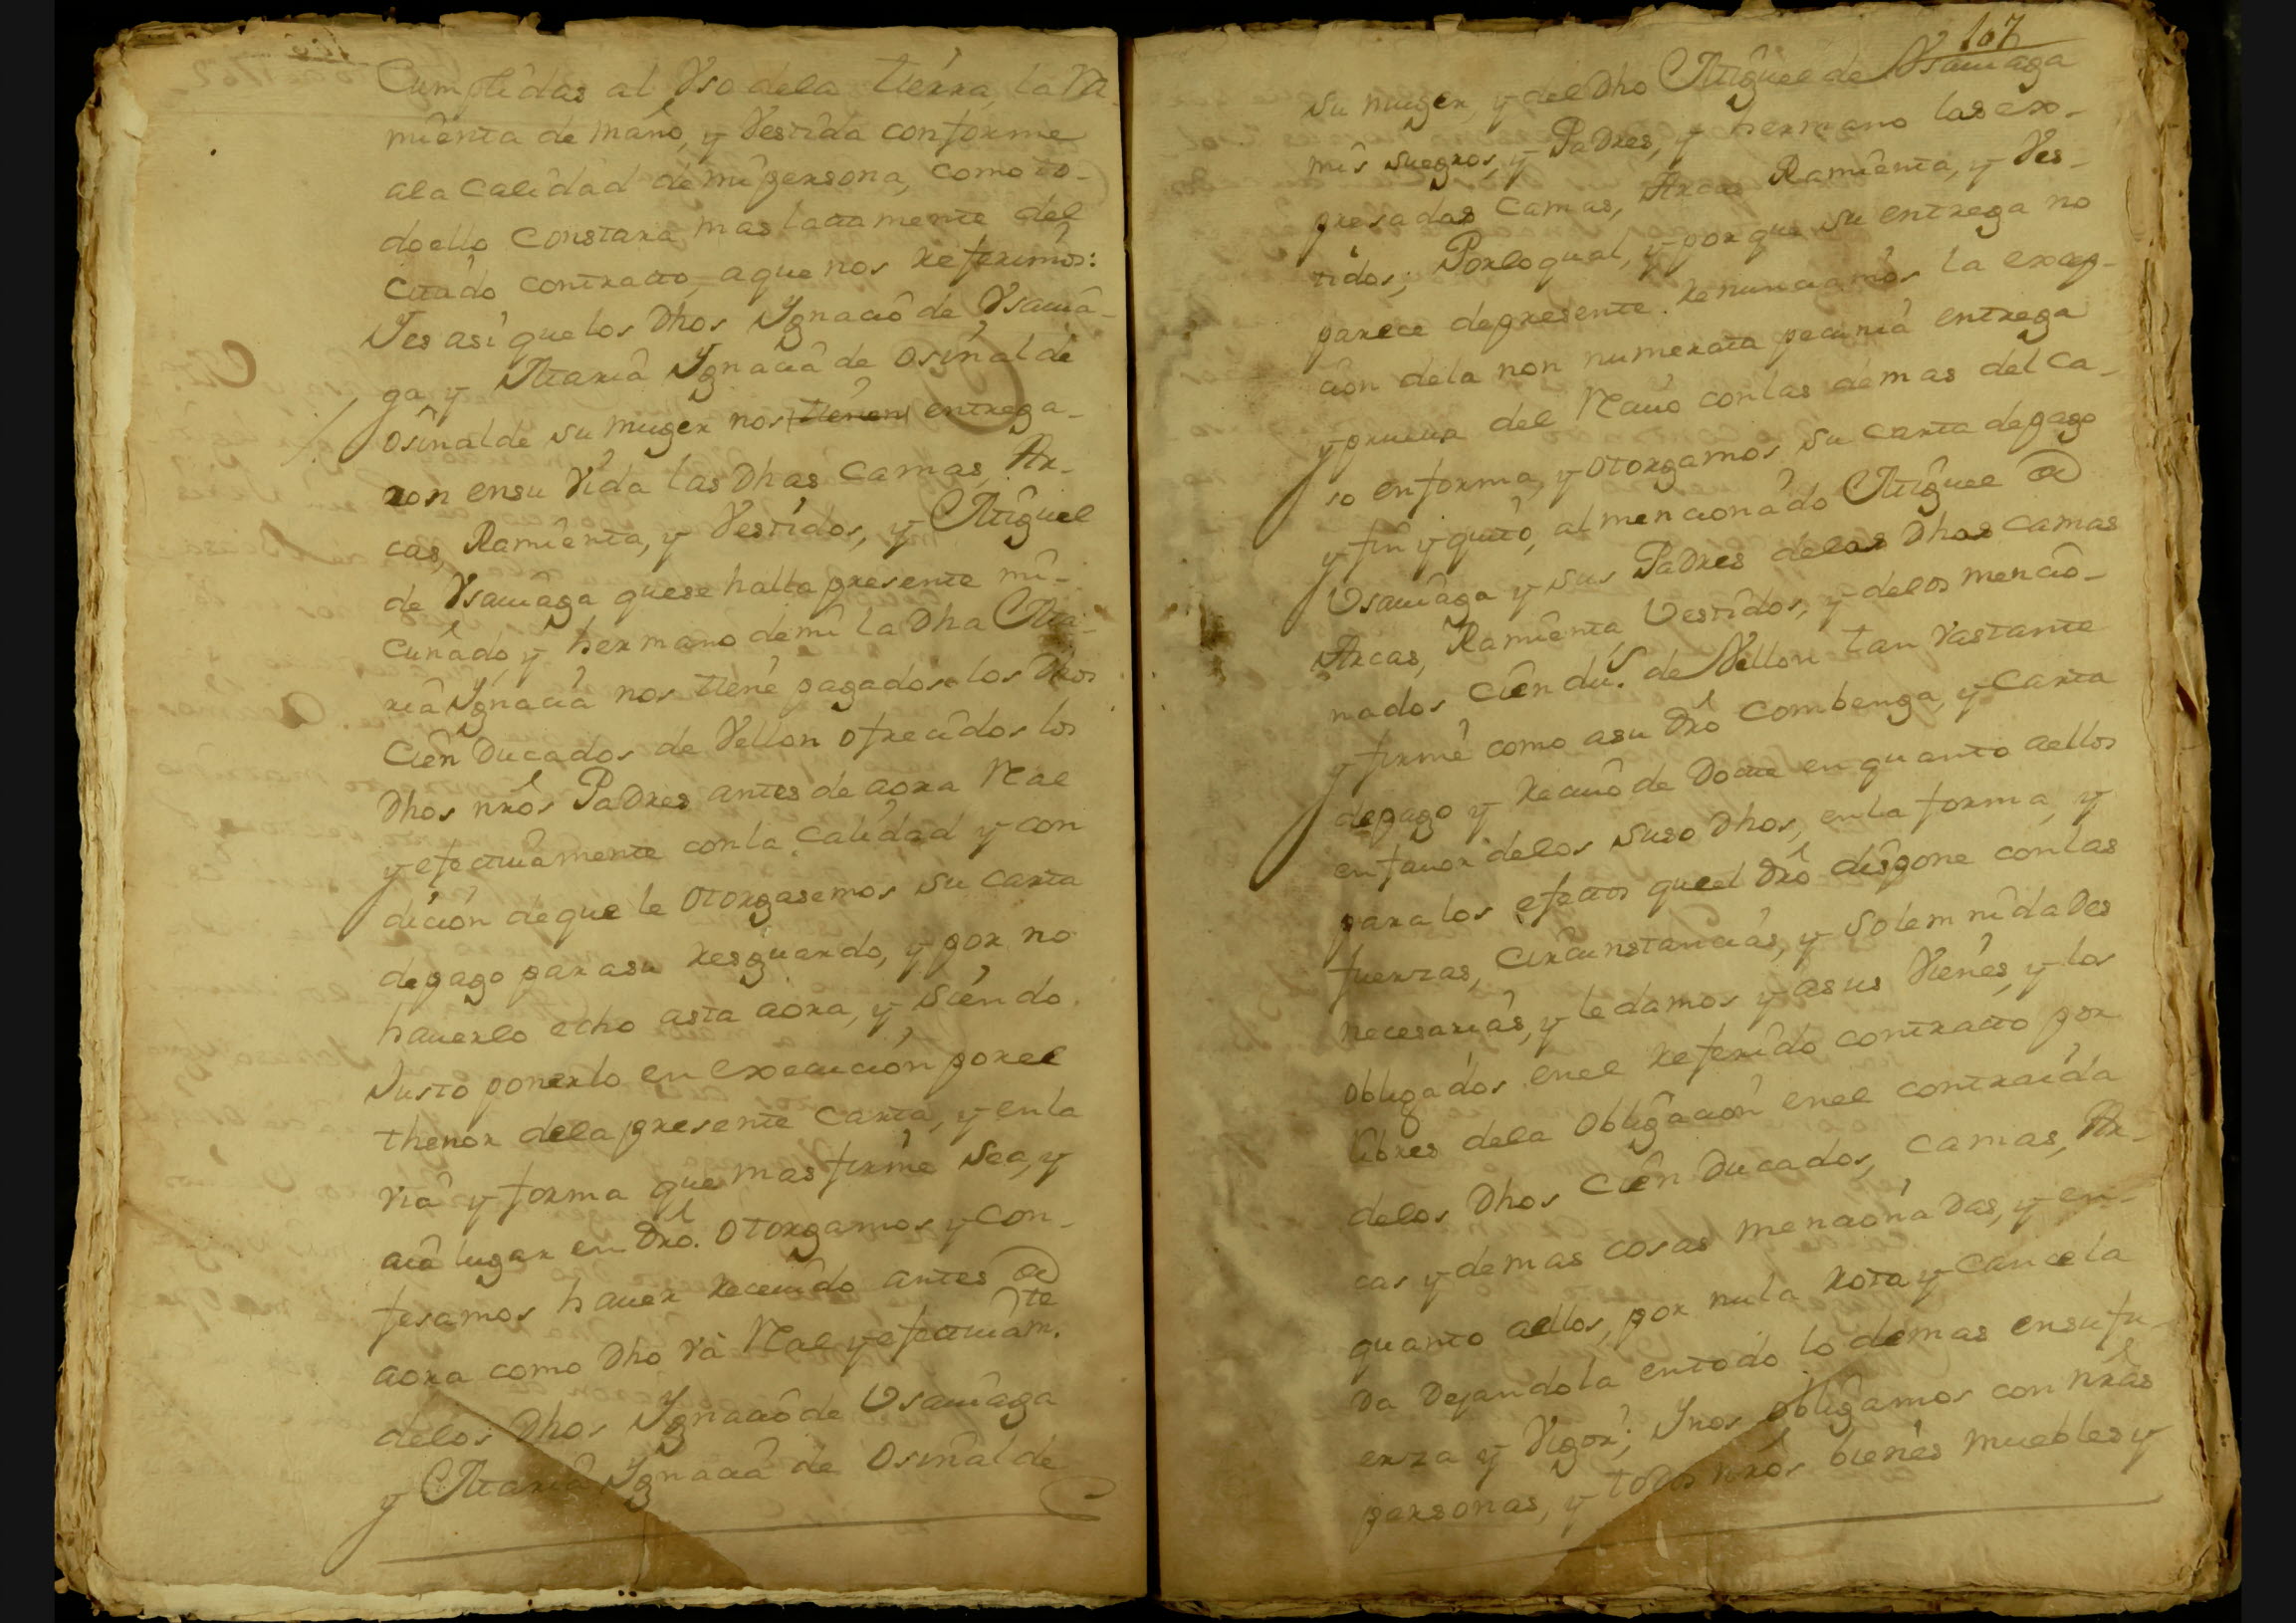 Cumplidas al Vso dela tierra, la Ra-
mienta de mano, y Vestida conforme
ala Calidad de mi persona, como to-
do ello Constara mas latamente del
Citado contracto, aque nos referimos:
Yes asi que los Dhos Ygnacio de Vsauia-
ga y Maria Ygnacia de Osinalde
Osinalde su muger nos tienen entrega-
ron ensu Vida las Dhas Camas, Ar-
cas, Ramienta, y Vestidos, y Miguel
de Vsauiaga quese halla presente mi
Cuñado, y hermano demi la Dha Ma-
ria Ygnacia nos tiene pagados los Dhos
Cien Ducados de Vellon ofrecidos los
Dhos nrôs Padres antes de aora Real
y efectiuamente conla Calidad y con
dicion deque le Otorgasemos su Carta
depago para su resguardo, y por no
hauerlo echo asta aora, y Siendo
Justo ponerlo en Execucion porel
thenor dela presente Carta, y enla
via y forma que mas firme Sea, y
aia lugar en Drô. Otorgamos y Con-
fesamos hauer Receuido antes de
aora como Dho va Real y efectiuamte.
delos Dhos Ygnacio de Vsauiaga
y Maria Ygnacia de Osinalde
107
Su muger, y del Dho Miguel de Vsauiaga
mis suegros, y Padres, y hermano las ex-
presadas Camas, Arcas Ramienta, y Ves-
tidos; Porlo qual, y por que su entrega no
parece depresente. Renunciamos la excep-
cion dela non numerata pecunia entrega
y prueua del Reciuo conlas demas del Ca-
so en forma, y Otorgamos su Carta depago
y fin y quito, al mencionado Miguel de
Vsauiaga y sus Padres delas Dhas Camas
Arcas, Ramienta Vestidos, y delos mencio-
nados Cien dus. de Vellon tan Vastante
y firme como asu Drô Combenga, y Carta
depago y Reciuo de Dote en quanto aellos
en fauor delos Suso Dhos, en la forma, y
para los efectos que el Drô dispone con las
fuerzas, Circunstancias, y Solemnidades
necesarias, y le damos y asus Vienes, y los
Obligados enel referido contracto por
libres dela Obligacion enel contraida
delos Dhos Cien Ducados, Camas, Ar-
cas y demas cosas mencionadas, y en-
quanto aellos, por nula Rota y Cancela
Da Dejandola entodo lo demas ensu fu-
erza y Vigor; Ynos obligamos con nrâs
personas, y todos nrôs bienes muebles y